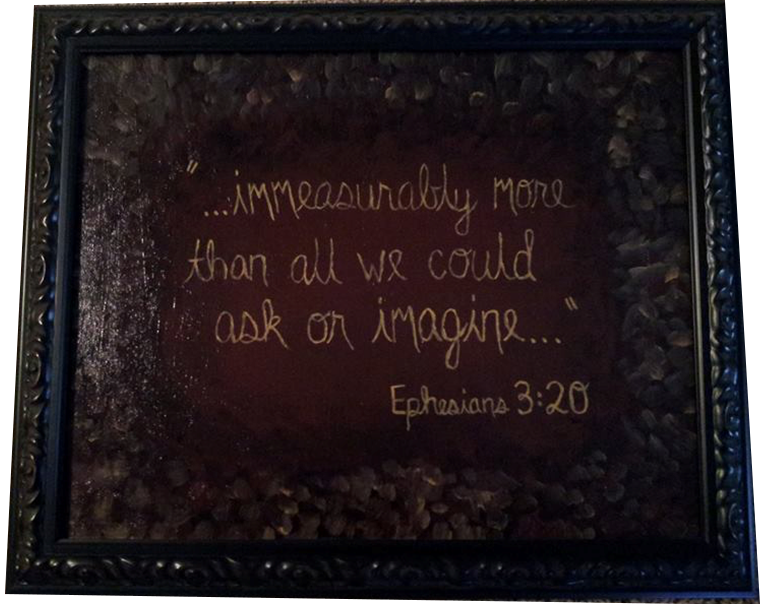 "...immeasurably more
than all we could
ask or imagine..."
Ephesians 3:20